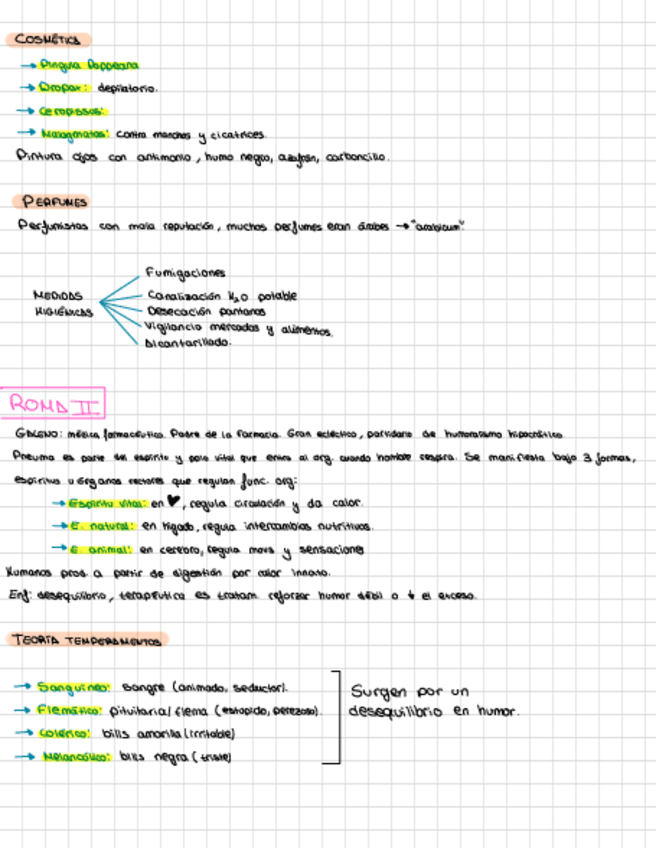 COSMÉTICA
→ Pinguia Poppeana
→ Dropax: depilatorio.
→ Ceropissos:
→ Malagmatas: contra manchas y cicatrices.
Pintura ojos con antimonio, humo negro, azafrán, carboncillo.
PERFUMES
Perfumistas con mala reputación, muchos perfumes eran árabes → "arabicum".
MEDIDAS HIGIÉNICAS
Fumigaciones
Canalización H₂O potable
Desecación pantanos
Vigilancia mercados y alimentos.
Alcantarillado.
ROMA II
GALENO: médica farmacéutica. Padre de la Farmacia. Gran ecléctico, partidario de humoralismo hipocrático
Pneuma es parte del espíritu y polo vital que entra al org. cuando hombre respira. Se manifiesta bajo 3 formas,
espíritus u órganos rectores que regulan func. org:
→ Espíritu vital: en ♥, regula circulación y da calor.
→ E. natural: en hígado, regula intercambios nutritivos.
→ E. animal: en cerebro, regula movs y sensaciones
Humanos prod. a partir de digestión por calor innato.
Enf: desequilibrio, terapéutica es tratam. reforzar humor débil o ↓ el exceso.
TEORÍA TEMPERAMENTOS
→ Sanguíneo: sangre (animado, seductor).
→ Flemático: pituitaria/ flema (estúpido, perezoso).
→ Colérico: bilis amarilla (irritable)
→ Melancólico: bilis negra (triste)
Surgen por un
desequilibrio en humor.